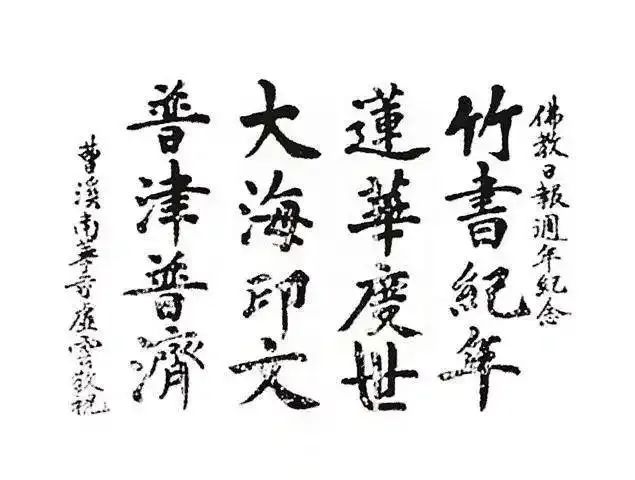 佛教日報週年紀念
竹書紀年
蓮華度世
大海印文
普津普濟
曹溪南華寺虛雲敬祝